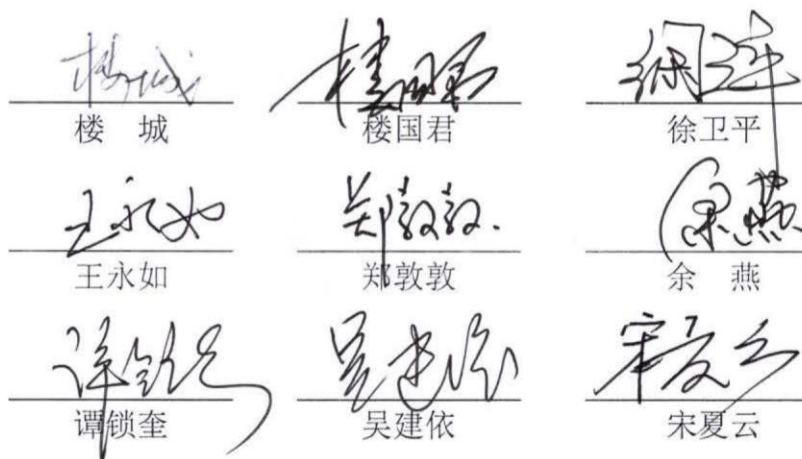 楼城 楼国君
楼 城 楼国君 徐卫平
王永如 郑敦敦. 余燕
王永如 郑敦敦 余 燕
吴建依 宋夏云
谭锁奎 吴建依 宋夏云